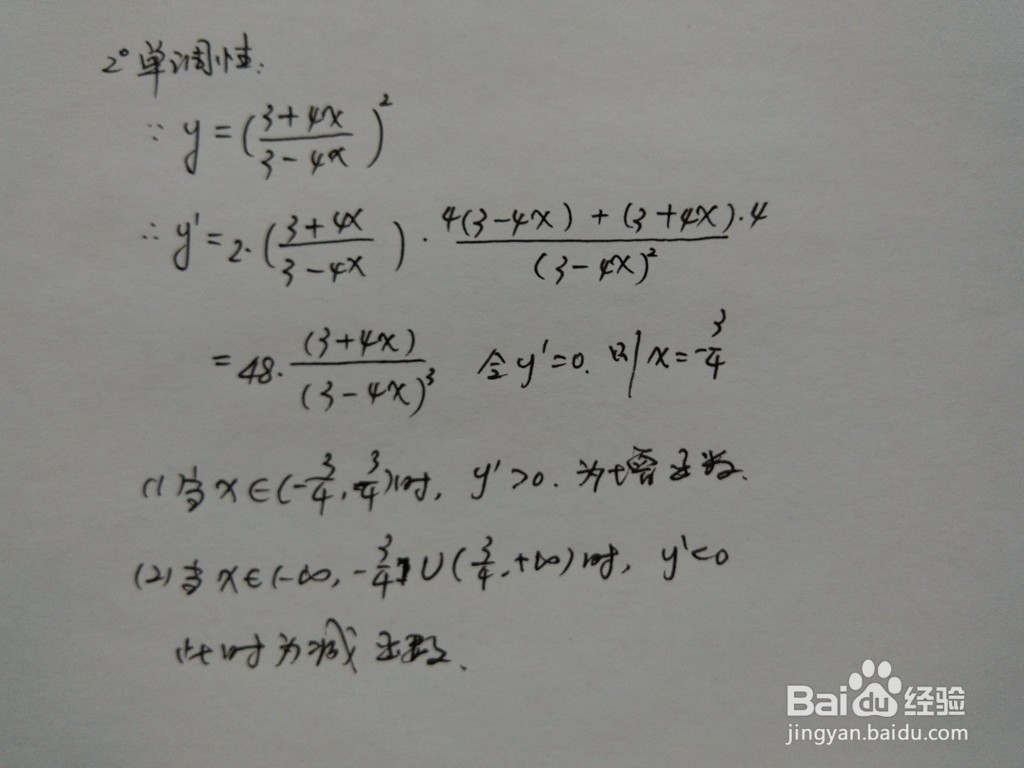 2° 单调性:
∵ y = ((3+4x)/(3-4x))²
∴ y' = 2·((3+4x)/(3-4x))·(4(3-4x)+(3+4x)·4)/(3-4x)²
= 48·(3+4x)/(3-4x)³ 令y'=0. 则x=-3/4
(1) 当x∈(-3/4, 3/4)时, y'>0. 为增函数.
(2) 当x∈(-∞, -3/4]∪(3/4, +∞)时, y'<0
此时为减函数.
Baidu经验
jingyan.baidu.com